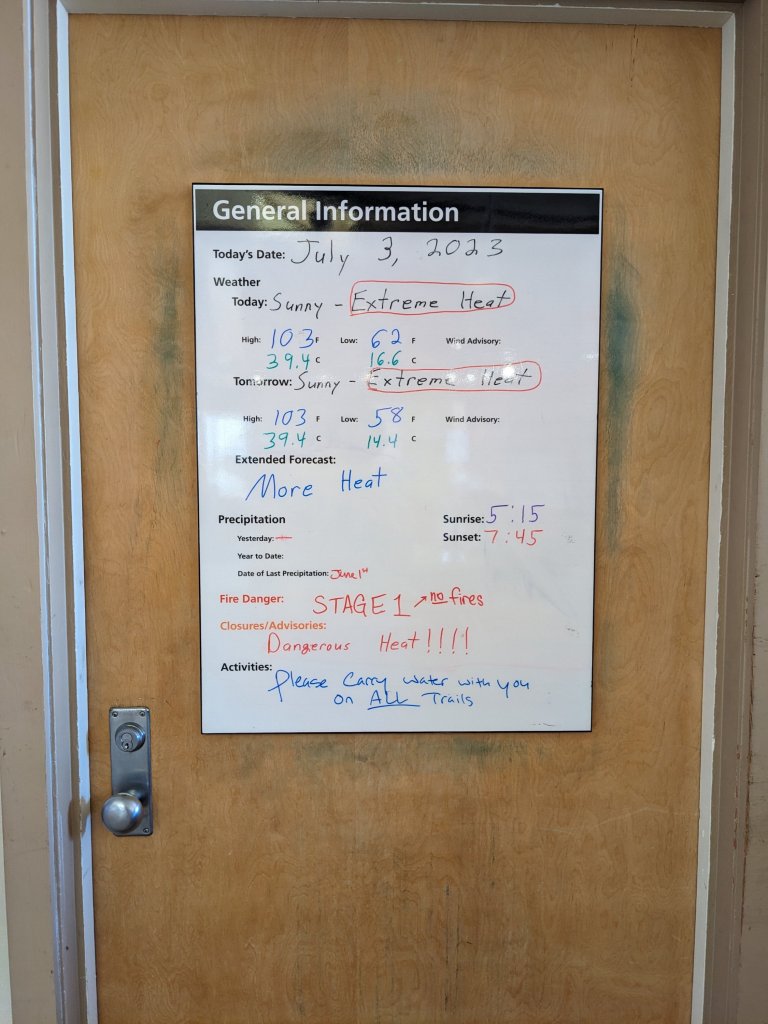 General Information
Today's Date: July 3, 2023
Weather
Today: Sunny - Extreme Heat
High: 103 F Low: 62 F Wind Advisory:
39.4 C 16.6 C
Tomorrow: Sunny - Extreme Heat
High: 103 F Low: 58 F Wind Advisory:
39.4 C 14.4 C
Extended Forecast:
More Heat
Precipitation Sunrise: 5:15
Yesterday: — Sunset: 7:45
Year to Date:
Date of Last Precipitation: June 1st
Fire Danger: STAGE 1 → no fires
Closures/Advisories:
Dangerous Heat!!!!
Activities: Please Carry water with you
on ALL Trails